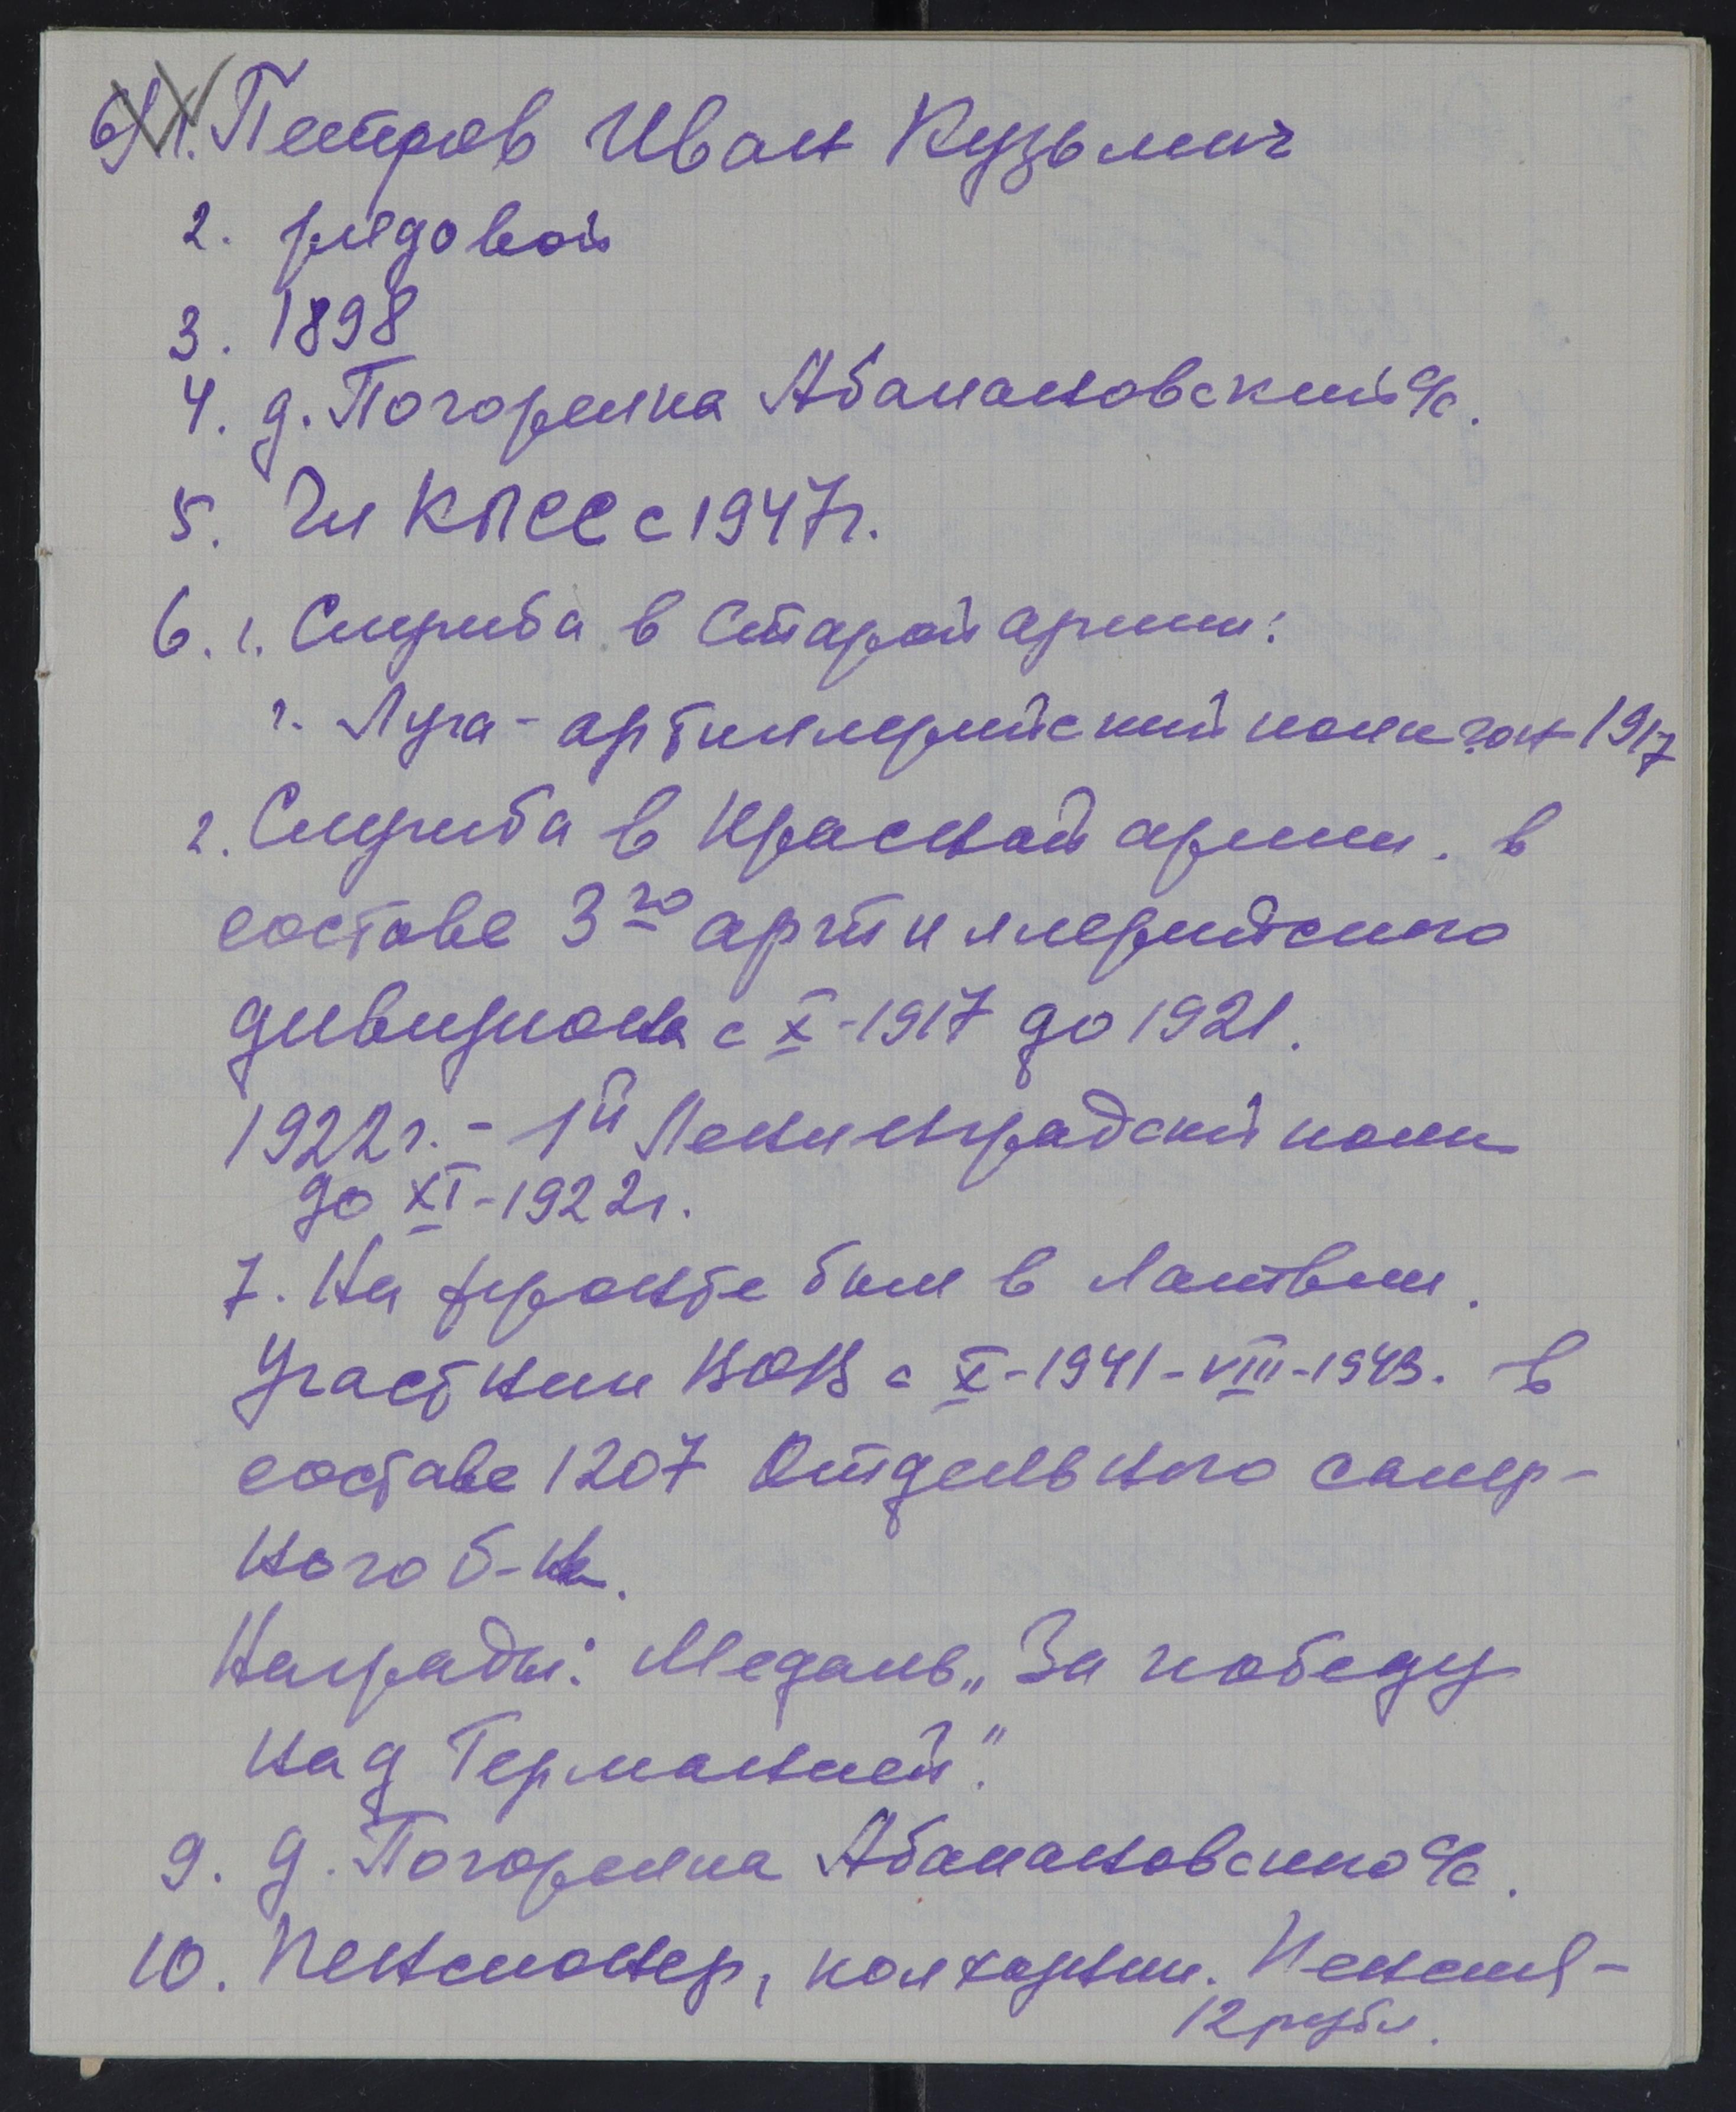 1. Петров Иван Кузьмич
2. рядовой
3. 1898
4. д. Погорелка Абакановский с/с.
5. Чл КПСС с 1947г.
6. 1. Служба в Старой армии:
г. Луга - артиллерийский полигон 1917
2. Служба в Красной армии. в
составе 3го артиллерийского
дивизиона с X-1917 до 1921.
1922г. - 1й Ленинградский полк
до XI-1922г.
7. На фронте был в Латвии.
Участник ВОВ с X-1941-VIII-1943. в
составе 1207 Отдельного сапер-
ного б-на.
Награды: Медаль „За победу
над Германией".
9. д. Погорелка Абакановского с/с.
10. Пенсионер, колхозник. Пенсия-
12 рубл.